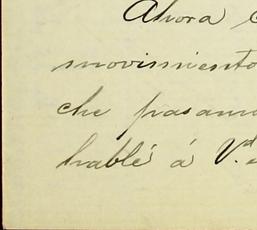 Ahora
movimiento
che pasamo
hablé á V.